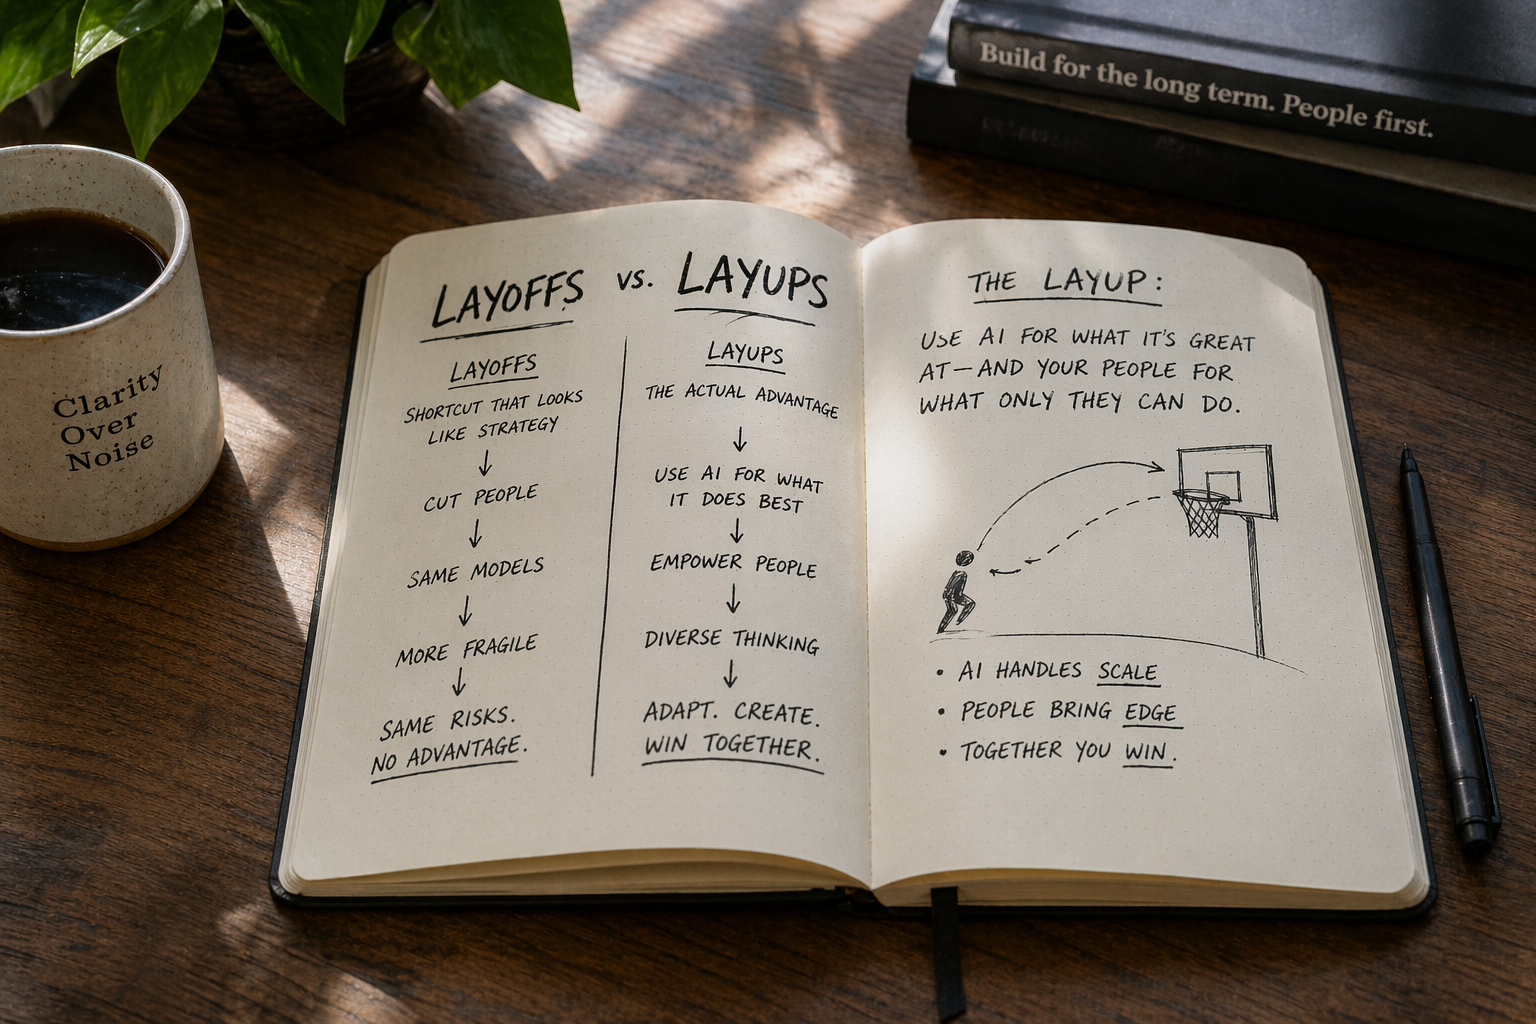 Build for the long term. People first.
Clarity
Over
Noise
LAYOFFS VS. LAYUPS
LAYOFFS
SHORTCUT THAT LOOKS
LIKE STRATEGY
CUT PEOPLE
SAME MODELS
MORE FRAGILE
SAME RISKS.
NO ADVANTAGE.
LAYUPS
THE ACTUAL ADVANTAGE
USE AI FOR WHAT
IT DOES BEST
EMPOWER PEOPLE
DIVERSE THINKING
ADAPT. CREATE.
WIN TOGETHER.
THE LAYUP:
USE AI FOR WHAT IT'S GREAT
AT—AND YOUR PEOPLE FOR
WHAT ONLY THEY CAN DO.
• AI HANDLES SCALE
• PEOPLE BRING EDGE
• TOGETHER YOU WIN.